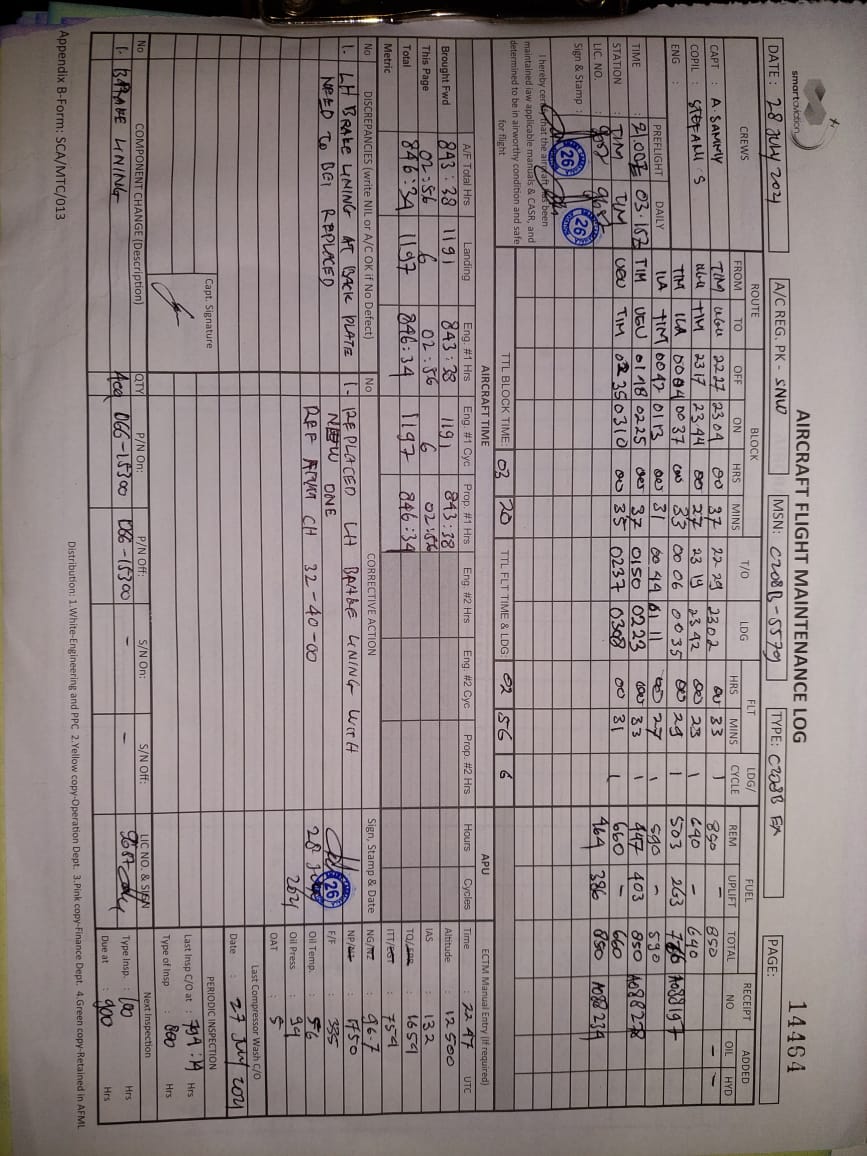 smart aviation
AIRCRAFT FLIGHT MAINTENANCE LOG
14464
DATE : 28 JULY 2021
A/C REG. PK - SNW
MSN: C208B-5579
TYPE: C208B EX
PAGE:
CREWS
ROUTE
BLOCK
T/O
LDG
FLT
LDG/
CYCLE
FUEL
RECEIPT
NO
ADDED
FROM TO
OFF ON HRS MINS
HRS MINS
REM UPLIFT TOTAL
OIL HYD
CAPT : A. SAMMY
TIM UGU 2227 2304 00 37 2229 2302 00 33 1 850 - 850 - -
COPIL : STEFANI S
UGU TIM 2317 2344 00 27 2319 2342 00 23 1 640 - 640
ENG :
TIM ILA 0004 0037 00 33 0006 0035 00 29 1 503 263 766 A088197
PREFLIGHT DAILY
ILA TIM 0042 0113 00 31 0044 0111 00 27 1 590 - 590
TIME : 2100Z 03.15Z
TIM UGU 0148 0225 00 37 0150 0223 00 33 1 447 403 850 A088228
STATION : TIM TIM
UGU TIM 0235 0310 00 35 0237 0308 00 31 1 660 - 660
LIC. NO. : 9687 9687
464 386 850 A088234
Sign & Stamp :
26
26
I hereby certify that the aircraft has been
maintained iaw applicable manuals & CASR, and
determined to be in airworthy condition and safe
for flight
TTL BLOCK TIME: 03 20
TTL FLT TIME & LDG: 02 56 6
AIRCRAFT TIME
APU
ECTM Manual Entry (If required)
A/F Total Hrs Landing Eng. #1 Hrs Eng. #1 Cyc Prop. #1 Hrs Eng. #2 Hrs Eng. #2 Cyc Prop. #2 Hrs Hours Cycles
Time : 2247 UTC
Brought Fwd 843:38 1191 843:38 1191 843:38
Altitude : 12500
This Page 02:56 6 02:56 6 02:56
IAS : 132
Total 846:34 1197 846:34 1197 846:34
TQ/EPR : 1654
Metric
ITT/EGT : 754
No DISCREPANCIES (write NIL or A/C OK if No Defect)
No CORRECTIVE ACTION
Sign, Stamp & Date
NG/N2 : 96.7
1. LH BRAKE LINING AT BACK PLATE
NEED TO BE REPLACED
1. REPLACED LH BRAKE LINING WITH
NEW ONE
REF AMM CH 32-40-00
26
28 July
2021
NP/N1 : 1750
F/F : 335
Oil Temp. : 56
Oil Press : 94
OAT : 5
Last Compressor Wash C/O
Date : 27 July 2021
PERIODIC INSPECTION
Last Insp C/O at : 794:14 Hrs
Type of Insp : 800 Hrs
Capt. Signature
No COMPONENT CHANGE (Description) QTY P/N On: P/N Off: S/N On: S/N Off: LIC NO. & SIGN
Next Inspection
1. BRAKE LINING 4ea 066-15300 066-15300 - - 9687
Type Insp. : 100 Hrs
Due at : 900 Hrs
Distribution: 1.White-Engineering and PPC 2.Yellow copy-Operation Dept. 3.Pink copy-Finance Dept. 4.Green copy-Retained in AFML
Appendix B-Form: SCA/MTC/013